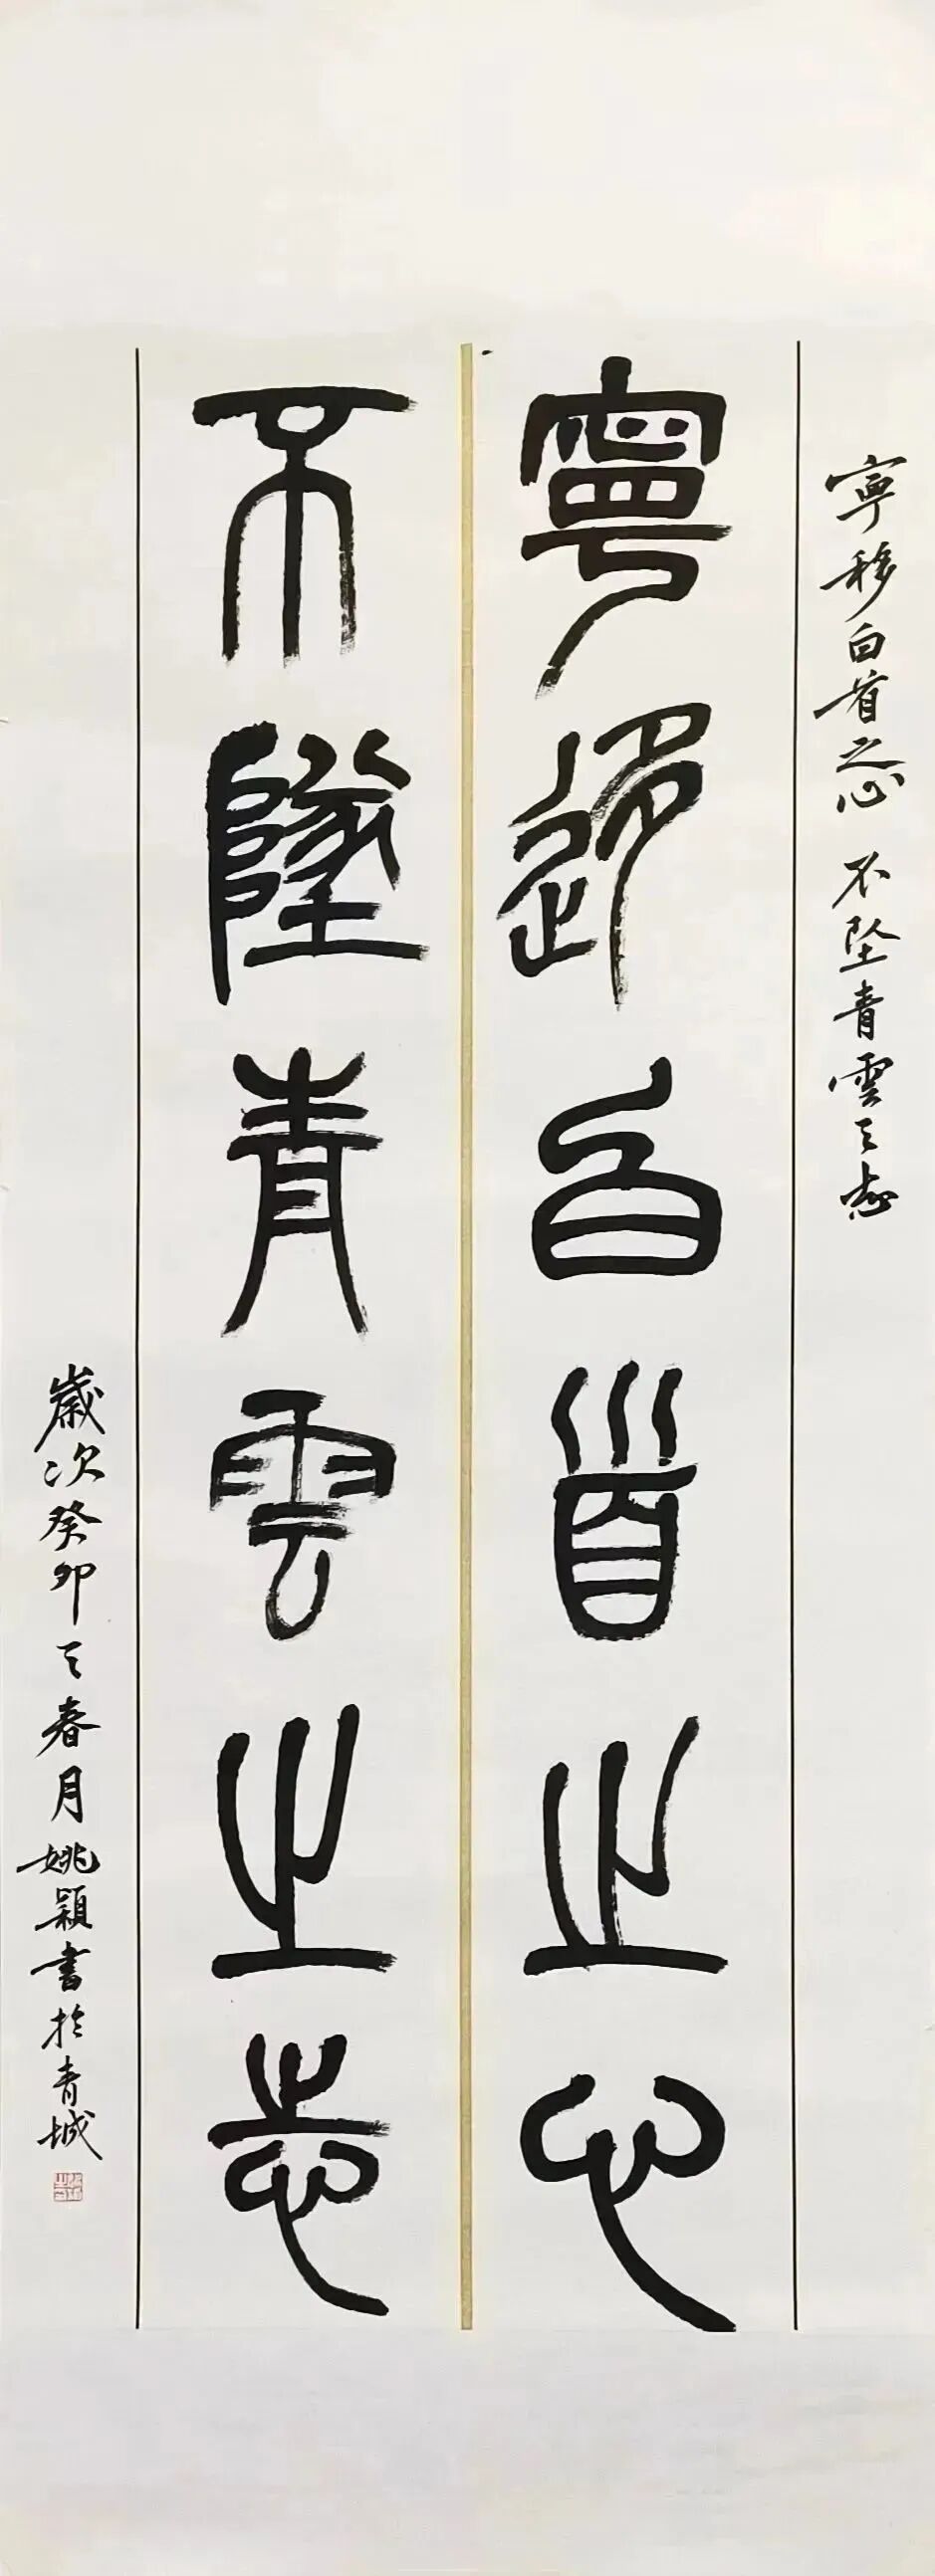 寧移白首之心 不坠青雲之志
寧迻白首之心
不墜青雲之志
歲次癸卯之春月姚颖書於青城